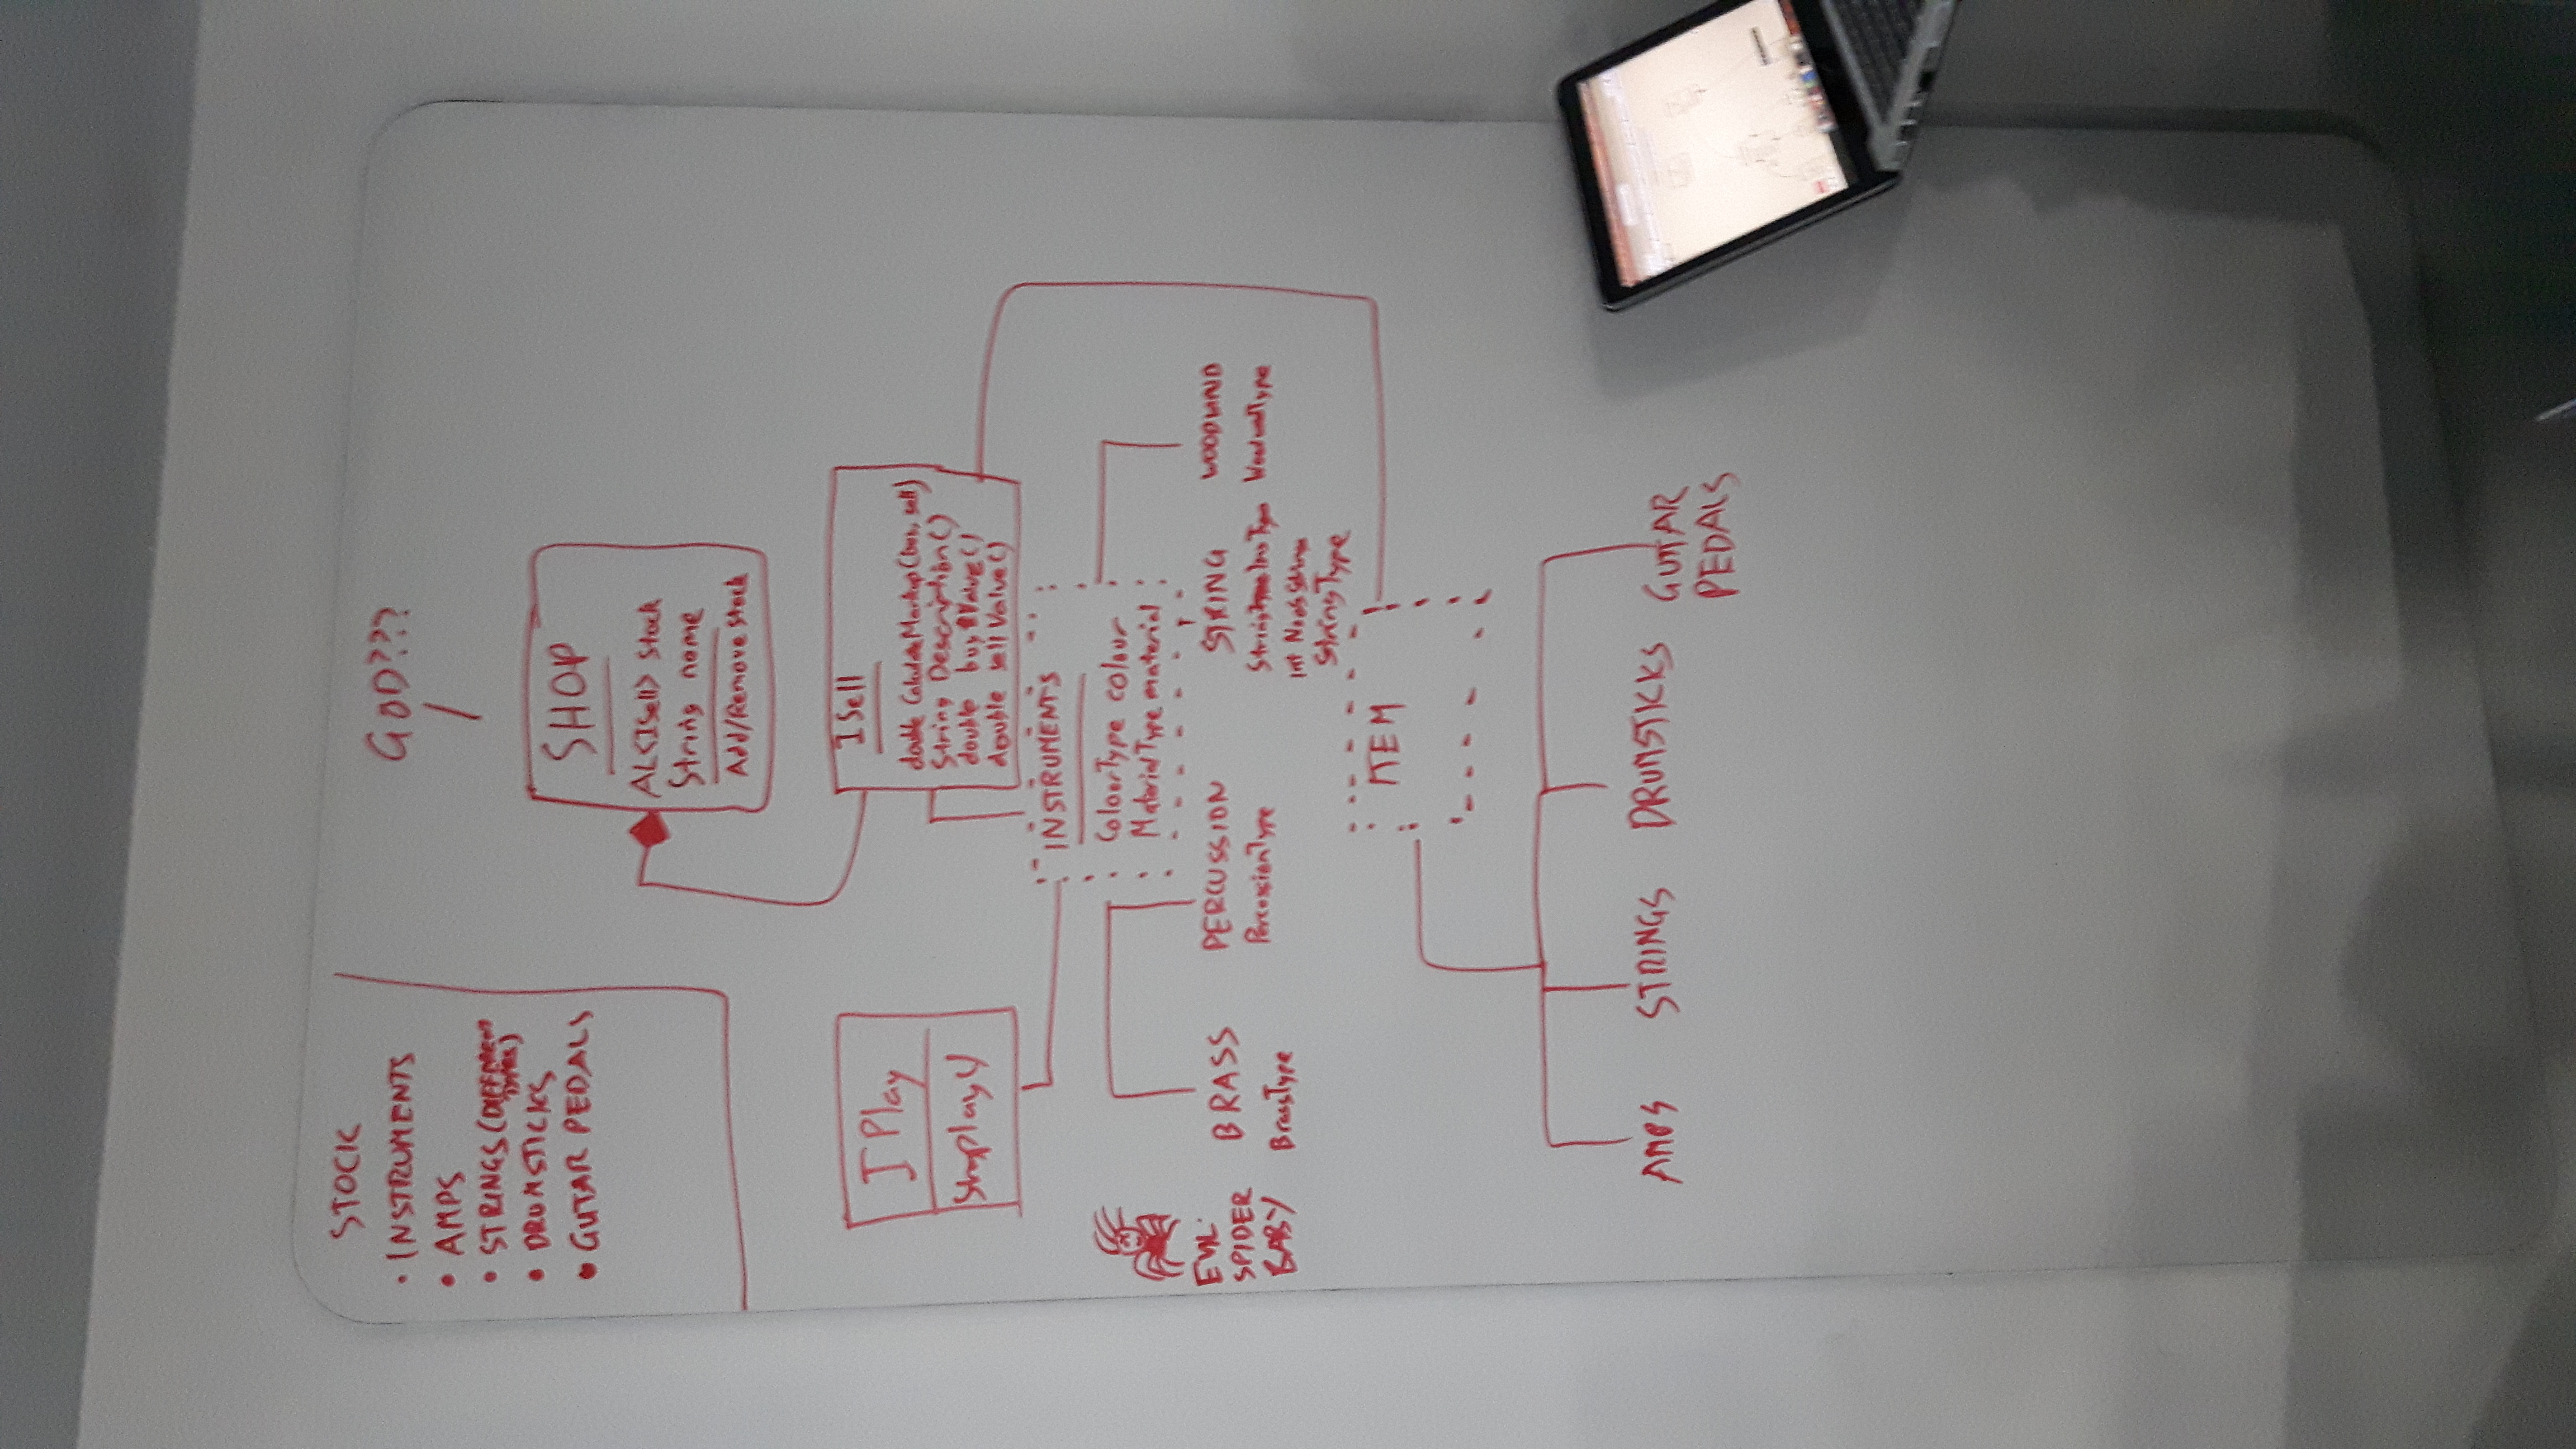 STOCK
• INSTRUMENTS
• AMPS
• STRINGS (DIFFERENT
TYPES)
• DRUMSTICKS
• GUTAR PEDALS
GOD???
SHOP
AL<ISell> Stock
String name
Add/Remove Stock
IPlay
String play()
ISell
double CalculateMarkup(buy, sell)
String Description()
double buyValue()
double sellValue()
INSTRUMENTS
ColourType colour
MaterialType material
EVIL
SPIDER
BABY
BRASS
BrassType
PERCUSSION
PercussionType
STRING
Int NoofStrings
StringType
WOODWIND
WoodwindType
ITEM
AMPS
STRINGS
DRUMSTICKS
GUITAR
PEDALS